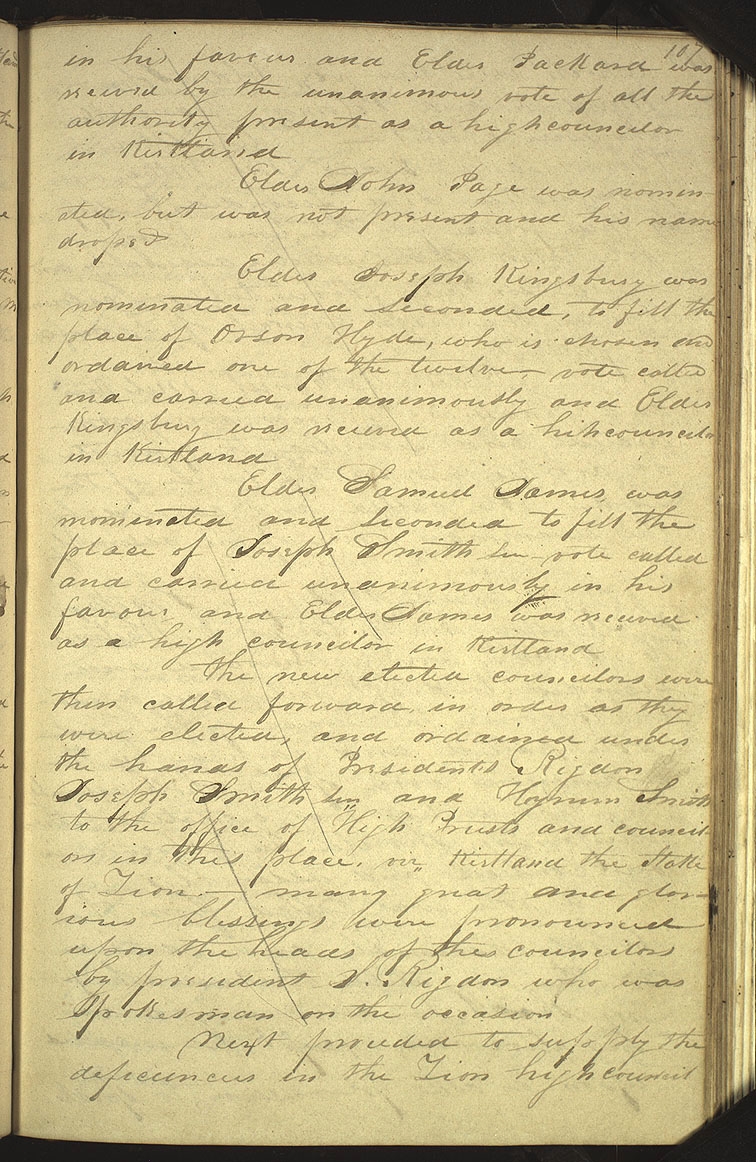 107
in his favour and Elder Packard was
received by the unanimous vote of all the
authority present as a highcouncilor
in Kirtland
Elder John Page was nomin
ated, but was not present and his name
droped
Elder Joseph Kingsbury was
nominated and seconded, to fill the
place of Orson Hyde, who is chosen and
ordained one of the twelve— vote called
and carried unanimously and Elder
Kingsbury was received as a hihcouncilor
in Kirtland
Elder Samuel James, was
nominated and seconded to fill the
place of Joseph Smith sen— vote called
and carried unanimously in his
favour and Elder James was received
as a high councilor in Kirtland
The new elected councilors were
then called forward in order as they
were elected, and ordained under
the hands of Presidents Rigdon
Joseph Smith sen and Hyrum Smith
to the office of High Priests and council
ors in this place, viz, Kirtland the Stake
of Zion— many great and glor—
ious blessings were pronounced
upon the heads of thes councilors
by president S. Rigdon who was
Spokesman on the occasion
Next proceded to supply the
deficiences in the Zion high council